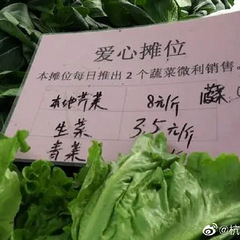 爱心摊位
本摊位每日推出2个蔬菜微利销售。
本地青菜 8元/斤
生菜 3.5元/斤
青菜